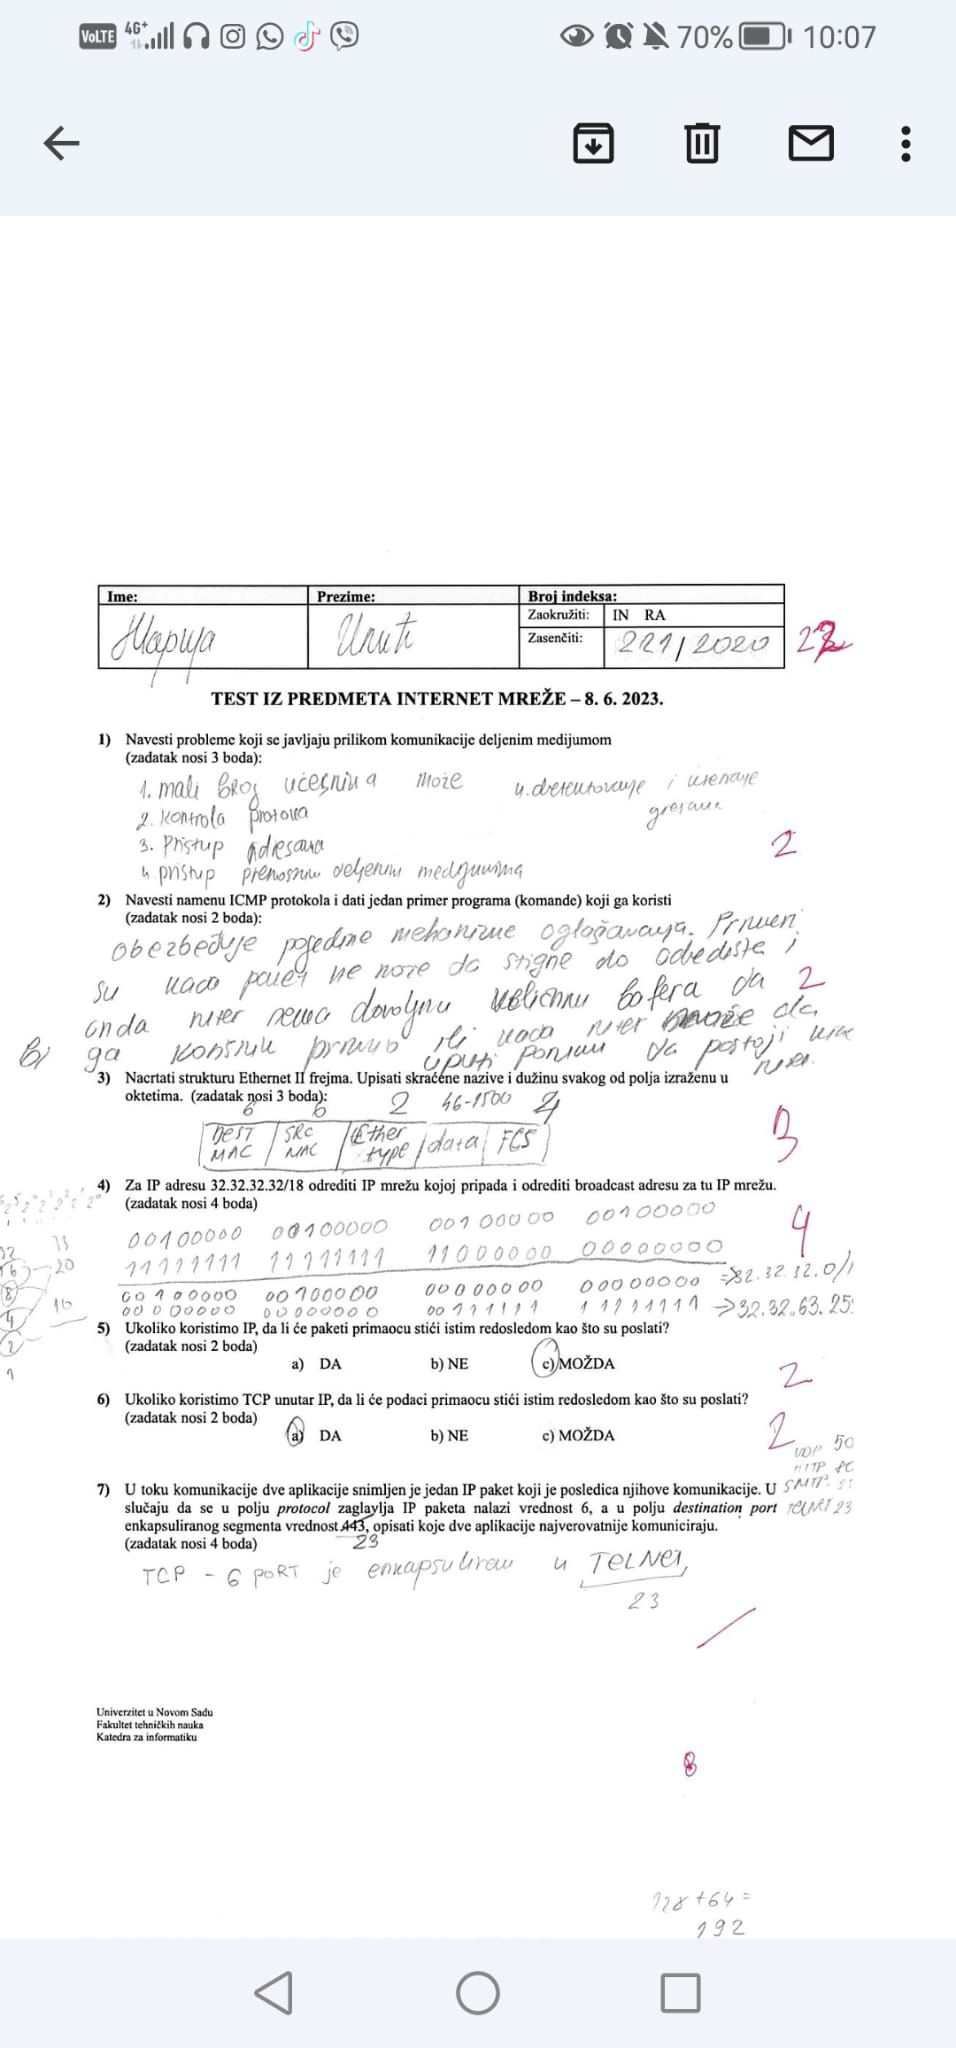 VoLTE 4G+ 70% 10:07
Ime: Prezime: Broj indeksa:
Zaokružiti: IN RA
Марија Илић Zasenčiti: 221/2020 22
TEST IZ PREDMETA INTERNET MREŽE – 8. 6. 2023.
1) Navesti probleme koji se javljaju prilikom komunikacije deljenim medijumom
(zadatak nosi 3 boda):
1. mali broj može
2. Kontrola
3. Pristup
4. pristup
2
2) Navesti namenu ICMP protokola i dati jedan primer programa (komande) koji ga koristi
(zadatak nosi 2 boda):
obezbeđuje pojedine mehanizme oglašavanja. Primeri
su kada paket ne može da stigne do odredišta i
onda ruter nema dovoljnu veličinu bafera da 2
ga ili kada ruter može da
uputi da postoji
3) Nacrtati strukturu Ethernet II frejma. Upisati skraćene nazive i dužinu svakog od polja izraženu u
oktetima. (zadatak nosi 3 boda):
6 6 2 46-1500 4
DEST MAC SRC MAC Ether type data FCS
3
4) Za IP adresu 32.32.32.32/18 odrediti IP mrežu kojoj pripada i odrediti broadcast adresu za tu IP mrežu.
(zadatak nosi 4 boda)
00100000 00100000 00100000 00100000
4
11111111 11111111 11000000 00000000
00100000 00100000 00000000 00000000 =>32.32.32.0/1
00000000 00000000 00111111 11111111 ->32.32.63.25
5) Ukoliko koristimo IP, da li će paketi primaocu stići istim redosledom kao što su poslati?
(zadatak nosi 2 boda)
a) DA b) NE c) MOŽDA
2
6) Ukoliko koristimo TCP unutar IP, da li će podaci primaocu stići istim redosledom kao što su poslati?
(zadatak nosi 2 boda)
a) DA b) NE c) MOŽDA
2
UDP 50
7) U toku komunikacije dve aplikacije snimljen je jedan IP paket koji je posledica njihove komunikacije. U
slučaju da se u polju protocol zaglavlja IP paketa nalazi vrednost 6, a u polju destination port TELNET 23
enkapsuliranog segmenta vrednost 443, opisati koje dve aplikacije najverovatnije komuniciraju.
23
(zadatak nosi 4 boda)
TCP - 6 PORT je enkapsuliran u TELNET,
23
Univerzitet u Novom Sadu
Fakultet tehničkih nauka
Katedra za informatiku
8
128+64=
192